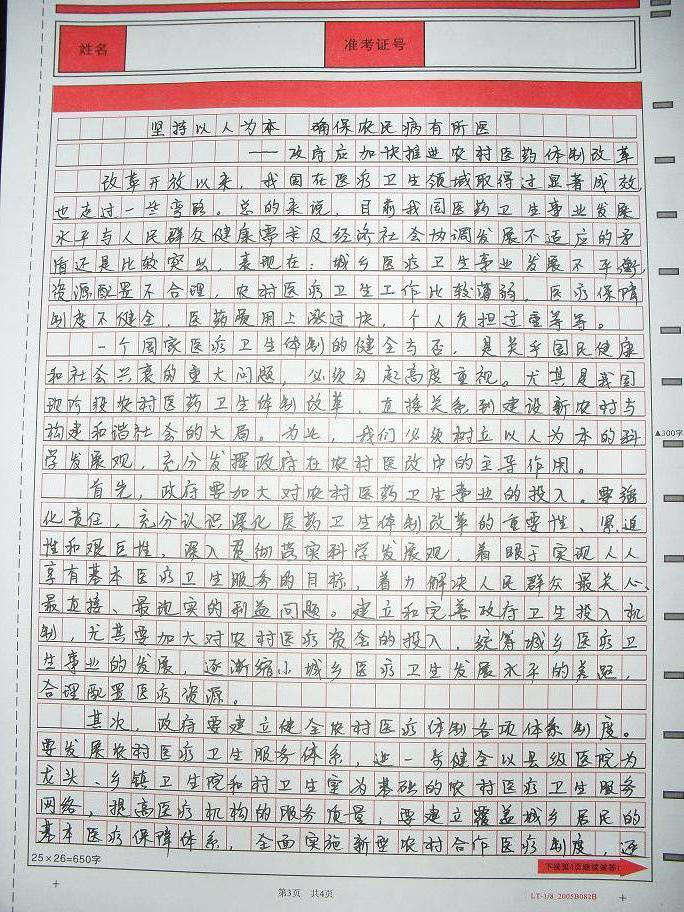 姓名 准考证号
坚持以人为本 确保农民病有所医
——政府应加快推进农村医药体制改革
改革开放以来，我国在医疗卫生领域取得过显著成效，
也走过一些弯路。总的来说，目前我国医药卫生事业发展
水平与人民群众健康需求及经济社会协调发展不适应的矛
盾还是比较突出，表现在：城乡医疗卫生事业发展不平衡，
资源配置不合理，农村医疗卫生工作比较薄弱，医疗保障
制度不健全，医药费用上涨过快，个人负担过重等等。
一个国家医疗卫生体制的健全与否，是关乎国民健康
和社会兴衰的重大问题，必须引起高度重视。尤其是我国
现阶段农村医药卫生体制改革，直接关系到建设新农村与
构建和谐社会的大局。为此，我们必须树立以人为本的科
学发展观，充分发挥政府在农村医改中的主导作用。
▲300字
首先，政府要加大对农村医药卫生事业的投入。要强
化责任，充分认识深化医药卫生体制改革的重要性、紧迫
性和艰巨性，深入贯彻落实科学发展观，着眼于实现人人
享有基本医疗卫生服务的目标，着力解决人民群众最关心、
最直接、最现实的利益问题。建立和完善政府卫生投入机
制，尤其要加大对农村医疗资金的投入，统筹城乡医疗卫
生事业的发展，逐渐缩小城乡医疗卫生发展水平的差距，
合理配置医疗资源。
其次，政府要建立健全农村医疗体制各项体系制度。
要发展农村医疗卫生服务体系，进一步健全以县级医院为
龙头、乡镇卫生院和村卫生室为基础的农村医疗卫生服务
网络，提高医疗机构的服务质量；要建立覆盖城乡居民的
基本医疗保障体系，全面实施新型农村合作医疗制度，逐
25×26=650字
下接第4页继续做答！
第3页 共4页
LT-1/8_2005B082B